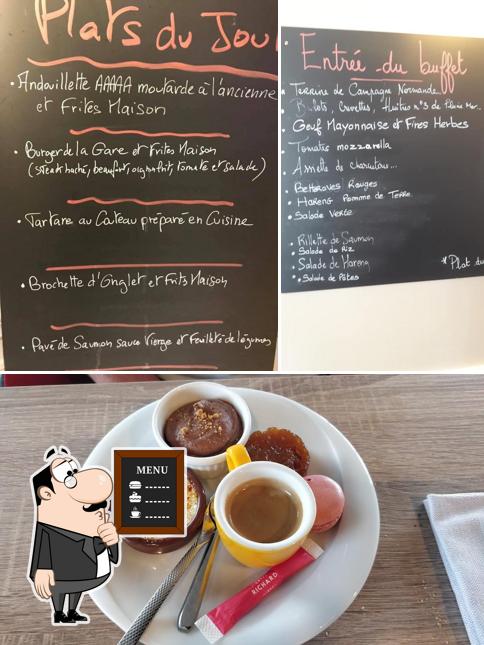 Plats du Jou
• Andouillette AAAAA moutarde à l'ancienne
et Frites Maison
• Burger de la Gare et Frites Maison
(steak haché, beaufort, oignon frit, tomate et salade)
• Tartare au Couteau préparé en Cuisine
• Brochette d'Onglet et Frits Maison
• Pavé de Saumon sauce Vierge et Feuilleté de légumes
• Entrée du buffet
• Terrine de Campagne Normande
• Bulots, Crevettes, Huitres n°3 de Pleine Mer..
• Oeuf Mayonnaise et Fines Herbes
• Tomates mozzarella
• Assiette de charcuterie...
• Betteraves Rouges
• Hareng Pomme de Terre
• Salade Verte
• Rillette de Saumon
• Salade de Riz
• Salade de Hareng
• Salade de Pâtes
* Plat du
MENU
RICHARD